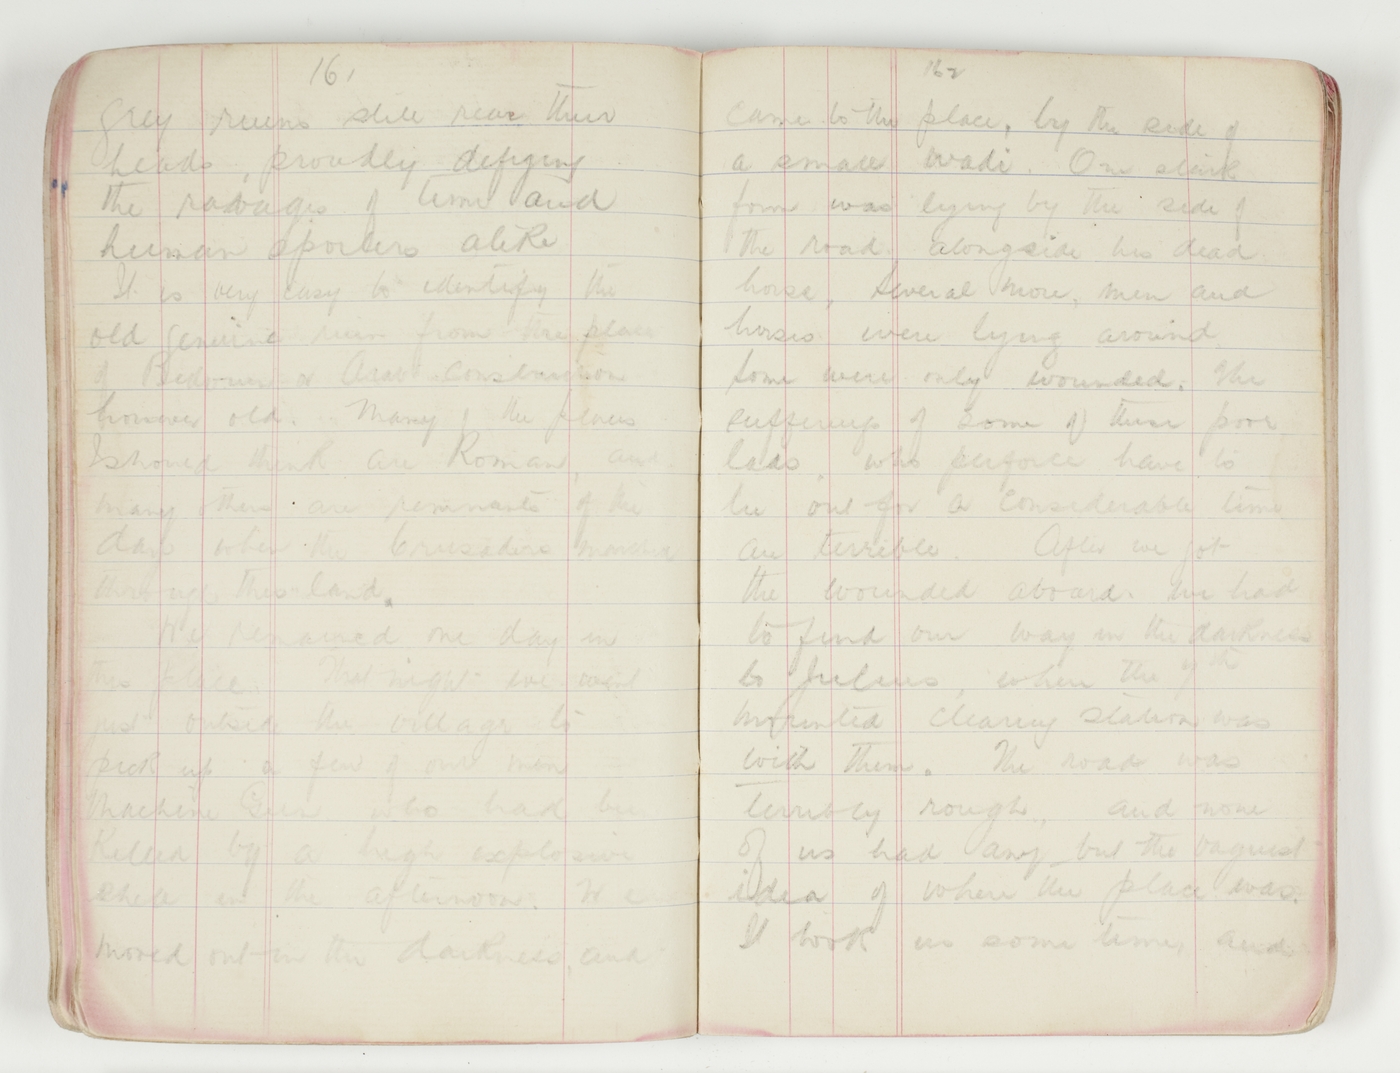 161
grey ruins still rear their
heads, proudly defying
the ravages of time and
human spoilers alike
It is very easy to identify the
old genuine ruin from the place
of Bedouin or Arab construction
however old. Many of the places
I should think are Roman, and
many others are remnants of the
days when the Crusaders marched
through this land.
We remained one day in
this place. That night we went
just outside the village to
pick up a few of our men
Machine Gun who had been
killed by a high explosive
shell in the afternoon. We
moved out in the darkness, and
162
came to the place, by the side of
a small wadi. One stark
form was lying by the side of
the road, alongside his dead
horse, several more, men and
horses were lying around
some were only wounded. The
sufferings of some of these poor
lads, who perforce have to
lie out for a considerable time
are terrible. After we got
the wounded aboard. We had
to find our way in the darkness
to Julius, where the 7th
mounted clearing station was
with them. The road was
terribly rough, and none
of us had any but the vaguest
idea of where the place was.
It took us some time, and